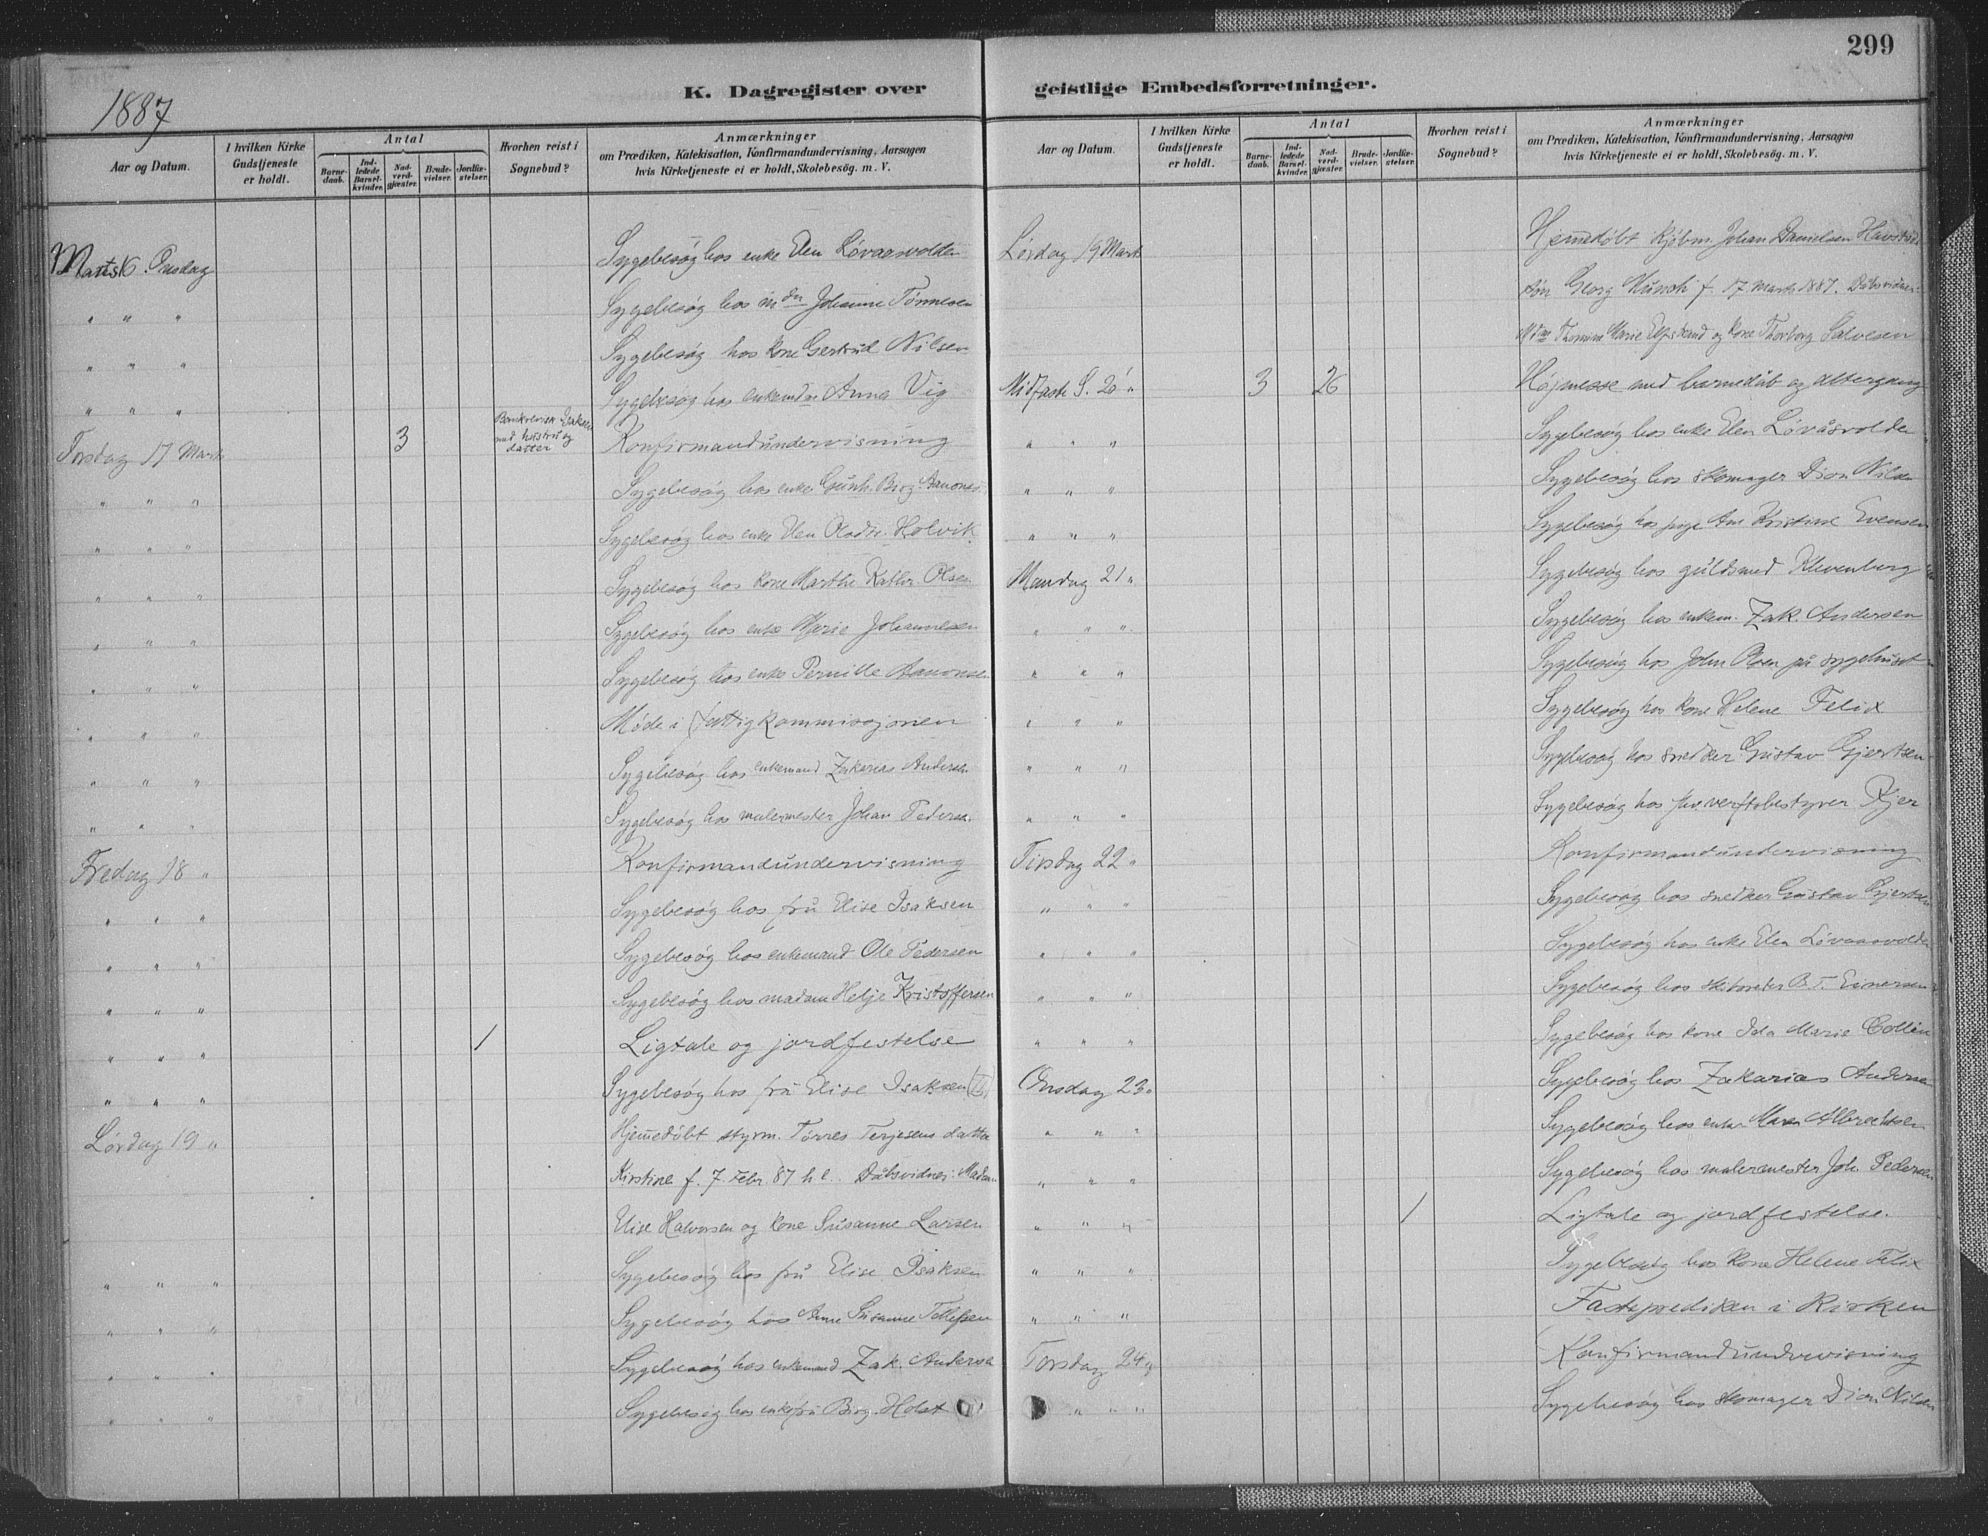 299
K. Dagregister over geistlige Embedsforretninger.
1887
Aar og Datum.
I hvilken Kirke Gudstjeneste er holdt.
Antal
Barne-daab.
Ind-ledede Barsel-kvinder.
Nad-verd-gjæster.
Brude-vielser.
Jordfæ-stelser.
Hvorhen reist i Sognebud?
Anmærkninger
om Prædiken, Katekisation, Konfirmandundervisning, Aarsagen
hvis Kirketjeneste ei er holdt, Skolebesøg. m. V.
Marts 16. Onsdag Sygebesøg hos enke Elen Løvaasvolden
" " " Sygebesøg hos Johanne Tønnesen
" " " Sygebesøg hos kone Gertrud Nilsen
" " " Sygebesøg hos Anna Vig
Torsdag 17 Marts 3 med hustru og datter Konfirmandundervisning
" " " Sygebesøg hos enke Gunh. Berg Aanonsen
" " " Sygebesøg hos enke Elen Holvik
" " " Sygebesøg hos kone Marthe Kathr. Olsen
" " " Sygebesøg hos enke Marie Johannesen
" " " Sygebesøg hos enke Pernille Aanonsen
" " " Møde i fattigkommissjonen
" " " Sygebesøg hos enkemand Zakarias Andersen
" " " Sygebesøg hos malermester Johan Pedersen
Fredag 18 " Konfirmandundervisning
" " " Sygebesøg hos fru Elise Isaksen
" " " Sygebesøg hos enkemand Ole Pedersen
" " " Sygebesøg hos madam Helje Kristoffersen
" " " 1 Ligtale og jordfestelse
" " " Sygebesøg hos fru Elise Isaksen
Lørdag 19 " Hjemedøbt styrm. Tørres Terjesens datter
Kirstine f. 7 Febr. 87 h. e. Dåbsvidner: Madam
Elise Halvorsen og kone Susanne Larsen
" " " Sygebesøg hos fru Elise Isaksen
" " " Sygebesøg hos Anne Susanne Tellefsen
" " " Sygebesøg hos enkemand Zak. Andersen
" " " Sygebesøg hos enkefru Birg. Holst
Aar og Datum.
I hvilken Kirke Gudstjeneste er holdt.
Antal
Barne-daab.
Ind-ledede Barsel-kvinder.
Nad-verd-gjæster.
Brude-vielser.
Jordfæ-stelser.
Hvorhen reist i Sognebud?
Anmærkninger
om Prædiken, Katekisation, Konfirmandundervisning, Aarsagen
hvis Kirketjeneste ei er holdt, Skolebesøg. m. V.
Lørdag 19 Marts Hjemedøbt kjøbm. Johan Danielsen
søn Georg Munch f. 17 marts 1887. Dåbsvidner:
Marie og kone Thorborg Salvesen
Midfaste S. 20 " 3 26 Højmesse med barnedåb og altergang
" " " Sygebesøg hos enke Elen Løvåsvolden
" " " Sygebesøg hos skomager Dion Nilsen
" " " Sygebesøg hos pige Kristine Evensen
Mandag 21 " Sygebesøg hos guldsmed Klevenberg
" " " Sygebesøg hos enkem. Zak. Andersen
" " " Sygebesøg hos John Olsen på sygehuset
" " " Sygebesøg hos kone Helene Felix
" " " Sygebesøg hos snedker Gustav Gjertsen
" " " Sygebesøg hos verftsbestyrer Kjer
Tirsdag 22 " Konfirmandundervisning
" " " Sygebesøg hos snedker Gustav Gjertsen
" " " Sygebesøg hos enke Elen Løvaasvolden
" " " Sygebesøg hos B. T. Einersen
" " " Sygebesøg hos kone Ida Marie Collin
Onsdag 23 " Sygebesøg hos Zakarias Andersen
" " " Sygebesøg hos enke Maren Albrechtsen
" " " Sygebesøg hos malermester Joh. Pedersen
" " " 1 Ligtale og jordfestelse.
" " " Sygebesøg hos kone Helene Felix
" " " Fasteprediken i kirken
Torsdag 24 " Konfirmandundervisning
" " " Sygebesøg hos skomager Dion Nilsen